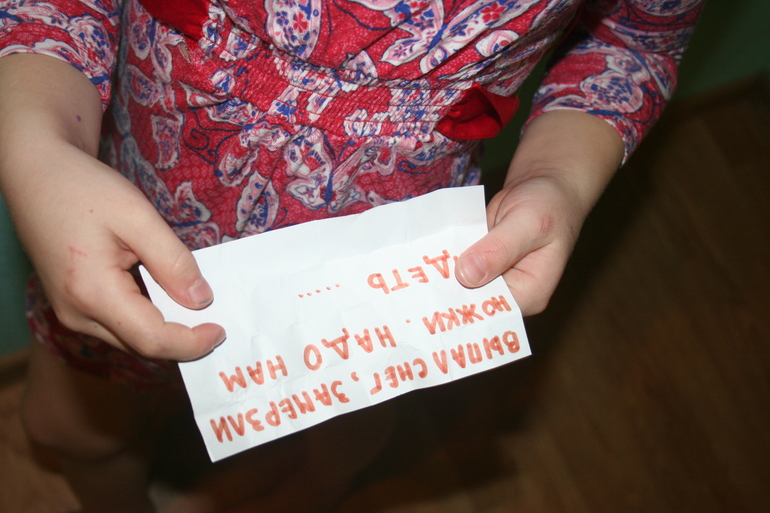 ВЫПАЛ СНЕГ, ЗАМЕРЗЛИ
НОЖКИ. НАДО НАМ
ДЕТЬ .....